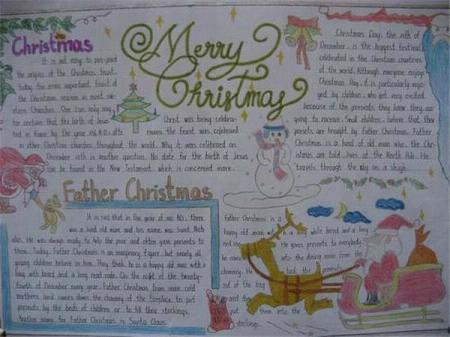 Christmas
It is not easy to pin-point
the origins of the Christmas feast,
today the most important feast of
the Christmas season in most wes-
tern Churches. One can only say
for certain that the birth of Jesus
in Rome by the year
in other Christian churches throughout the world. Why it was celebrated on
December 25th is another question. No date for the birth of Jesus
can be found in the New Testament, which is concerned more
Merry
Christmas
Christ was being celebra-
means the feast was celebrated
Christmas Day, the 25th of
December, is the biggest festival
celebrated in the Christian countries
of the world. Although everyone enjoys
Christmas Day, it is particularly enjo-
yed by children, who get very excited
because of the presents they know they are
going to receive. Small children believe that their
presents are brought by Father Christmas. Father
Christmas is a kind of old man who, the Chri-
stmas are told, lives at the North Pole. He
travels through the sky on a sleigh
Father Christmas
It is said that in the year of
was a kind old man and his name was Saint Nich-
olas. He was always ready to help the poor and often gave presents to
them. Today, Father Christmas is an imaginary figure, but nearly all
young children believe in him. They think he is a happy old man with a
long white beard and a long red robe. On the night of the twenty-
fourth of December every year, Father Christmas from some cold
northern land comes down the chimney of the fireplace to put
presents by the beds of children or to fill their stockings.
Another name for Father Christmas is Santa Claus.
Father Christmas is a
happy old man with a
white beard and a long
He gives presents to everybody
into the dining room from the
the presents
of the
bag and
put them into the
stockings.